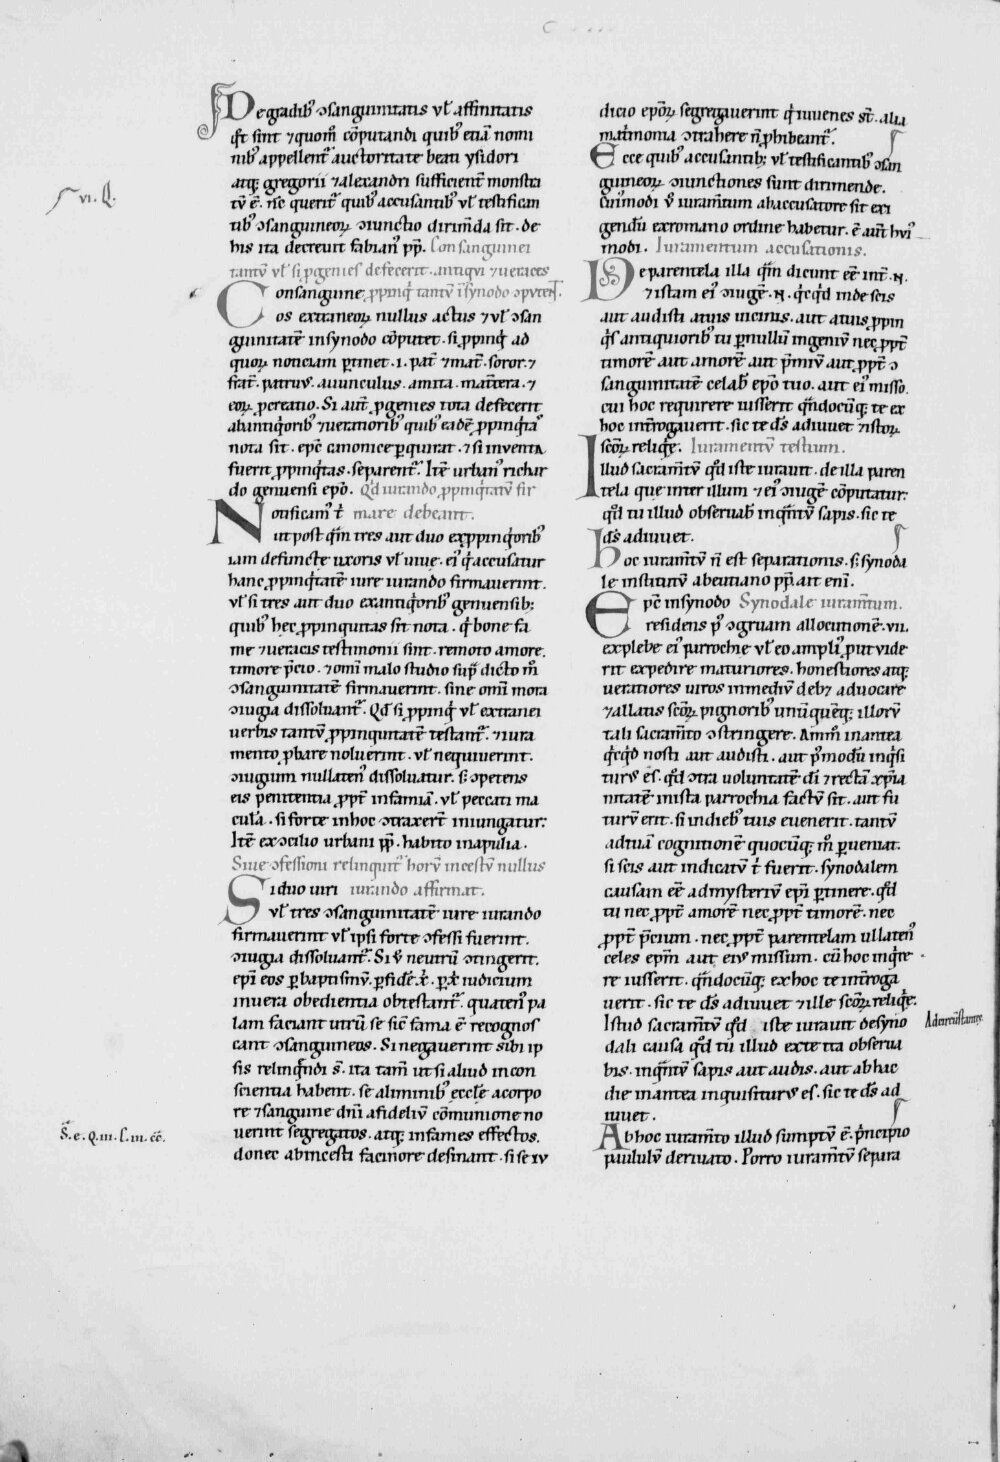 De gradib᷒ ɔsanguinitatis vl̄ affinitatis
qͥt sint ⁊ quom̄ cōputandi quib᷒ etiā nomi
nib᷒ appellent᷑ auctoritate beati ysidori
atq; gregorii ⁊ alexandri sufficient᷑ monstra
tv̄ ē. nc̄ querit᷑ quib᷒ accusantib᷒ vl̄ testifican
tib᷒ ɔsanguineoꝝ ɔiunctio dirim̄da sit. de
his ita decreuit fabian᷒ pp̄. Consanguinei
tantv̄ vl̄ si ꝓgenies defecerit. antiqui ⁊ ueraces
Consanguine ꝓpinqͥ tantv̄ ī synodo ɔputent᷑.
os extraneoꝝ nullus actus ⁊ vl̄ ɔsan
guinitatē in synodo cōputet. si ꝓpinqͥ ad
quoꝝ noticiam ꝑtinet .i. pat᷑ ⁊ mat᷑. soror. ⁊
frat᷑. patruus. auunculus. amita. mat᷑tera. ⁊
eoꝝ ꝓcreatio. Si aut̄ ꝓgenies tota defecerit
ab antiqͥorib᷒ ⁊ ueratiorib᷒ quib᷒ eadē ꝓpinqͥtas
nota sit. epc̄ canonice ꝑquirat. ⁊ si inventa
fuerit ꝓpinqͥtas. separent᷑. Itē urban᷒ richar
do genuensi ep̄o. Qd̄ iurando ꝓpinqͥtatv̄ fir
Notificam᷒ tͥ mare debeant.
ut post qm̄ tres aut duo ex ꝓpinqͥorib᷒
iam defuncte uxoris vl̄ uiue. ei᷒ qͥ accusatur
hanc ꝓpinqͥtatē iure iurando firmauerint.
vl̄ si tres aut duo ex antiqͥorib᷒ genuensib;
quib᷒ hec ꝓpinquitas sit nota. qͥ bone fa
me ⁊ ueracis testimonii sint. remoto amore.
timore p̄cio. ⁊ om̄i malo studio sup̄ dicto m̄
ɔsanguinitatē firmauerint. sine om̄i mora
ɔiugia dissoluant᷑. Qd̄ si ꝓpinqͥ vl̄ extranei
uerbis tantv̄ ꝓpinquitatē testant᷑. ⁊ iura
mento ꝓbare noluerint. vl̄ nequiuerint.
ɔiugium nullaten᷒ dissoluatur. s; ɔpetens
eis penitentia ꝓpt̄ infamiā. vl̄ peccati ma
culā. si forte in hoc ɔtraxert̄ iniungatur.
Itē ex ɔcilio urbani pp̄. habito in apulia.
Siue ɔfessioni relinquit᷑ horv̄ incestv̄ nullus
Si duo uiri iurando affirmat.
vl̄ tres ɔsanguinitatē iure iurando
firmauerint vl̄ ipsi forte ɔfessi fuerint.
ɔiugia dissoluant᷑. Si v̄ neutrū ɔtingerit.
ep̄i eos ꝑ baptismv̄. ꝑ fidē xͥ. ꝑ xͥ iudicium
in uera obedientia obtestant᷑. quaten᷒ pa
lam faciant utrū se sic̄ fama ē recognos
cant ɔsanguineos. Si negauerint sibi ip
sis relinqͣndi s̄. ita tam̄ ut si aliud in con
scientia habent. se a liminib᷒ eccl̄e a corpo
re ⁊ sanguine dn̄i a fideliv̄ cōmunione no
uerint segregatos. atq; infames effectos.
donec ab incesti facinore desinant. si se iu
dicio ep̄oꝝ segregauerint qͥ iuuenes st̄. alia
mat᷑monia ɔtrahere n̄ ꝓhibeant᷑.
Ecce quib᷒ accusantib; vl̄ testificantib᷒ ɔsan
guineoꝝ ɔiunctiones sunt dirimende.
Cui᷒modi v̄ iuram̄tum ab accusatore sit exi
gendū ex romano ordine habetur. ē aut̄ hui᷒
modi. Iuramentum accusationis.
De parentela illa qm̄ dicunt eē int̄ .N.
⁊ istam ei᷒ ɔiugē .N. qͥcqͥd inde scis
aut audisti a tuis uicinis. aut a tuis ꝓpin
qͥs antiquiorib᷒ tu ꝑ nullū ingeniv̄ nec ꝓpt̄
timorē aut amorē aut p̄miv̄ aut ꝓpt̄ ɔ
sanguinitatē celab᷒ ep̄o tuo. aut ei᷒ misso.
cui hoc requirere iusserit qn̄docūq; te ex
hoc int̄rogauerit. sic te ds̄ adiuuet ⁊ istoꝝ
sc̄oꝝ reliqͥe. Iuramentv̄ testium.
Illud sacram̄tv̄ qd̄ iste iurauit. de illa paren
tela que inter illum ⁊ ei᷒ ɔiugē cōputatur.
qd̄ tu illud obseruab᷒ inqn̄tv̄ sapis. sic te
ds̄ adiuuet.
Hoc iuram̄tv̄ n̄ est separationis. s; synoda
le institutv̄ ab eutiano pp̄. ait eni᷒.
Epc̄ in synodo Synodale iuram̄tum.
residens p᷒ ɔgruam allocutionē .vii.
ex plebe ei᷒ parrochie vl̄ eo ampli᷒ put vide
rit expedire maturiores. honestiores atq;
ueratiores uiros in mediv̄ deb⁊ aduocare
⁊ allatis sc̄oꝝ pignorib᷒ unūquēq; illorv̄
tali sacram̄to ɔstringere. Am̄m̄ in antea
qͥcqͥd nosti aut audisti. aut p᷒modū inqͥsi
turus es. qd̄ ɔtra uoluntatē d̄i ⁊ rectā xp̄ia
nitatē in ista parrochia factv̄ sit. aut fu
turv̄ erit. si in dieb᷒ tuis euenerit. tantv̄
ad tuā cognitionē quocūq; m̄ ꝑueniat.
si scis aut indicatv̄ tͥ fuerit. synodalem
causam eē ad mysteriv̄ ep̄i ꝑtinere. qd̄
tu nec ꝓpt̄ amorē nec ꝓpt̄ timorē. nec
ꝓpt̄ p̄cium. nec ꝓpt̄ parentelam ullaten᷒
celes ep̄m aut eius missum. cū hoc inqͥre
re iusserit. qn̄docūq; ex hoc te int̄roga
uerit. sic te ds̄ adiuuet ⁊ ille sc̄oꝝ reliqͥe.
Istud sacram̄tv̄ qd̄ iste iurauit de syno
dali causa qd̄ tu illud ex te ita obserua
bis. inqn̄tv̄ sapis aut audis. aut ab hac
die in antea inquisiturus es. sic te ds̄ ad
iuuet.
Ab hoc iuram̄to illud sumptv̄ ē. p̄ncipio
paululv̄ deriuato. Porro iuram̄tv̄ separa
vi. Q.
S̄. e. Q. iii. l. iii. cē.
Ad circūstantes.